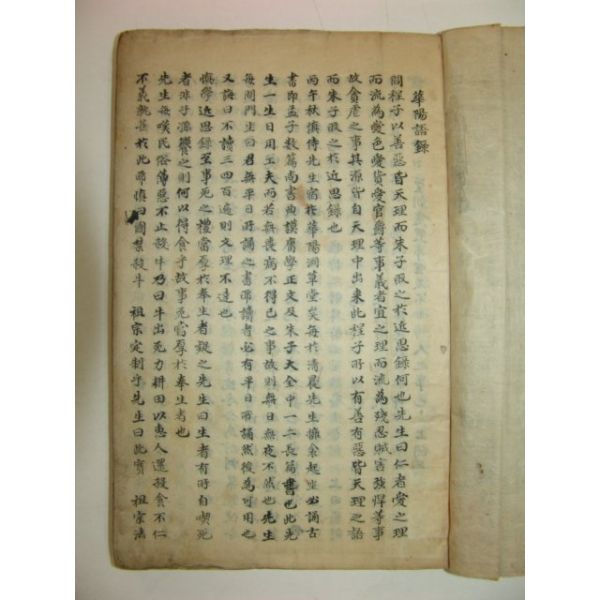 華陽語錄
問程子以善惡皆天理而朱子取之於近思錄何也先生曰仁者愛之理
而流爲愛色愛貨愛官爵等事義者宜之理而流爲殘忍賊害强悍等事
故貪虐之事其源皆自天理中出來此程子所以有善有惡皆天理之語
而朱子取之於近思錄也
丙午秋愼侍先生宿於華陽洞草堂矣每於清晨先生擁衾起坐必誦古
書卽孟子數篇尚書典謨庸學正文及朱子大全中一二長篇書也此先
生一生日用工夫而若無喪病不得已之事故則無日無夜不然也先生
每問門生曰君無平日所誦之書耶讀者必有平日所誦然後爲可用也
又誨曰不讀三四百遍則文理不達也
愼學近思錄至事死之禮當厚於奉生者疑之先生曰生者有時自喫死
者非子孫饗之則何以得食乎故事死當厚於奉生者也
先生每嘆民俗傳惡不止殺牛乃曰牛出死力耕田以惠人還投食不仁
不義孰甚於此耶愼曰國禁殺牛 祖宗定制乎先生曰此實 祖宗法